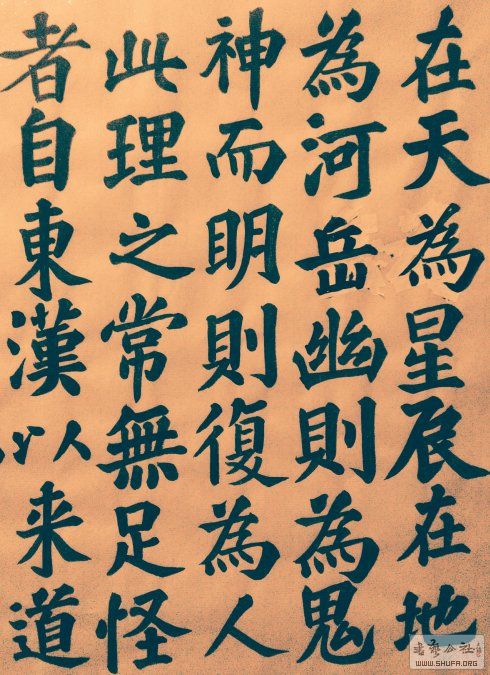 在天為星辰在地
為河岳幽則為鬼
神而明則復為人
此理之常無足怪
者自東漢以来道
書藝公社
WWW.SHUFA.ORG